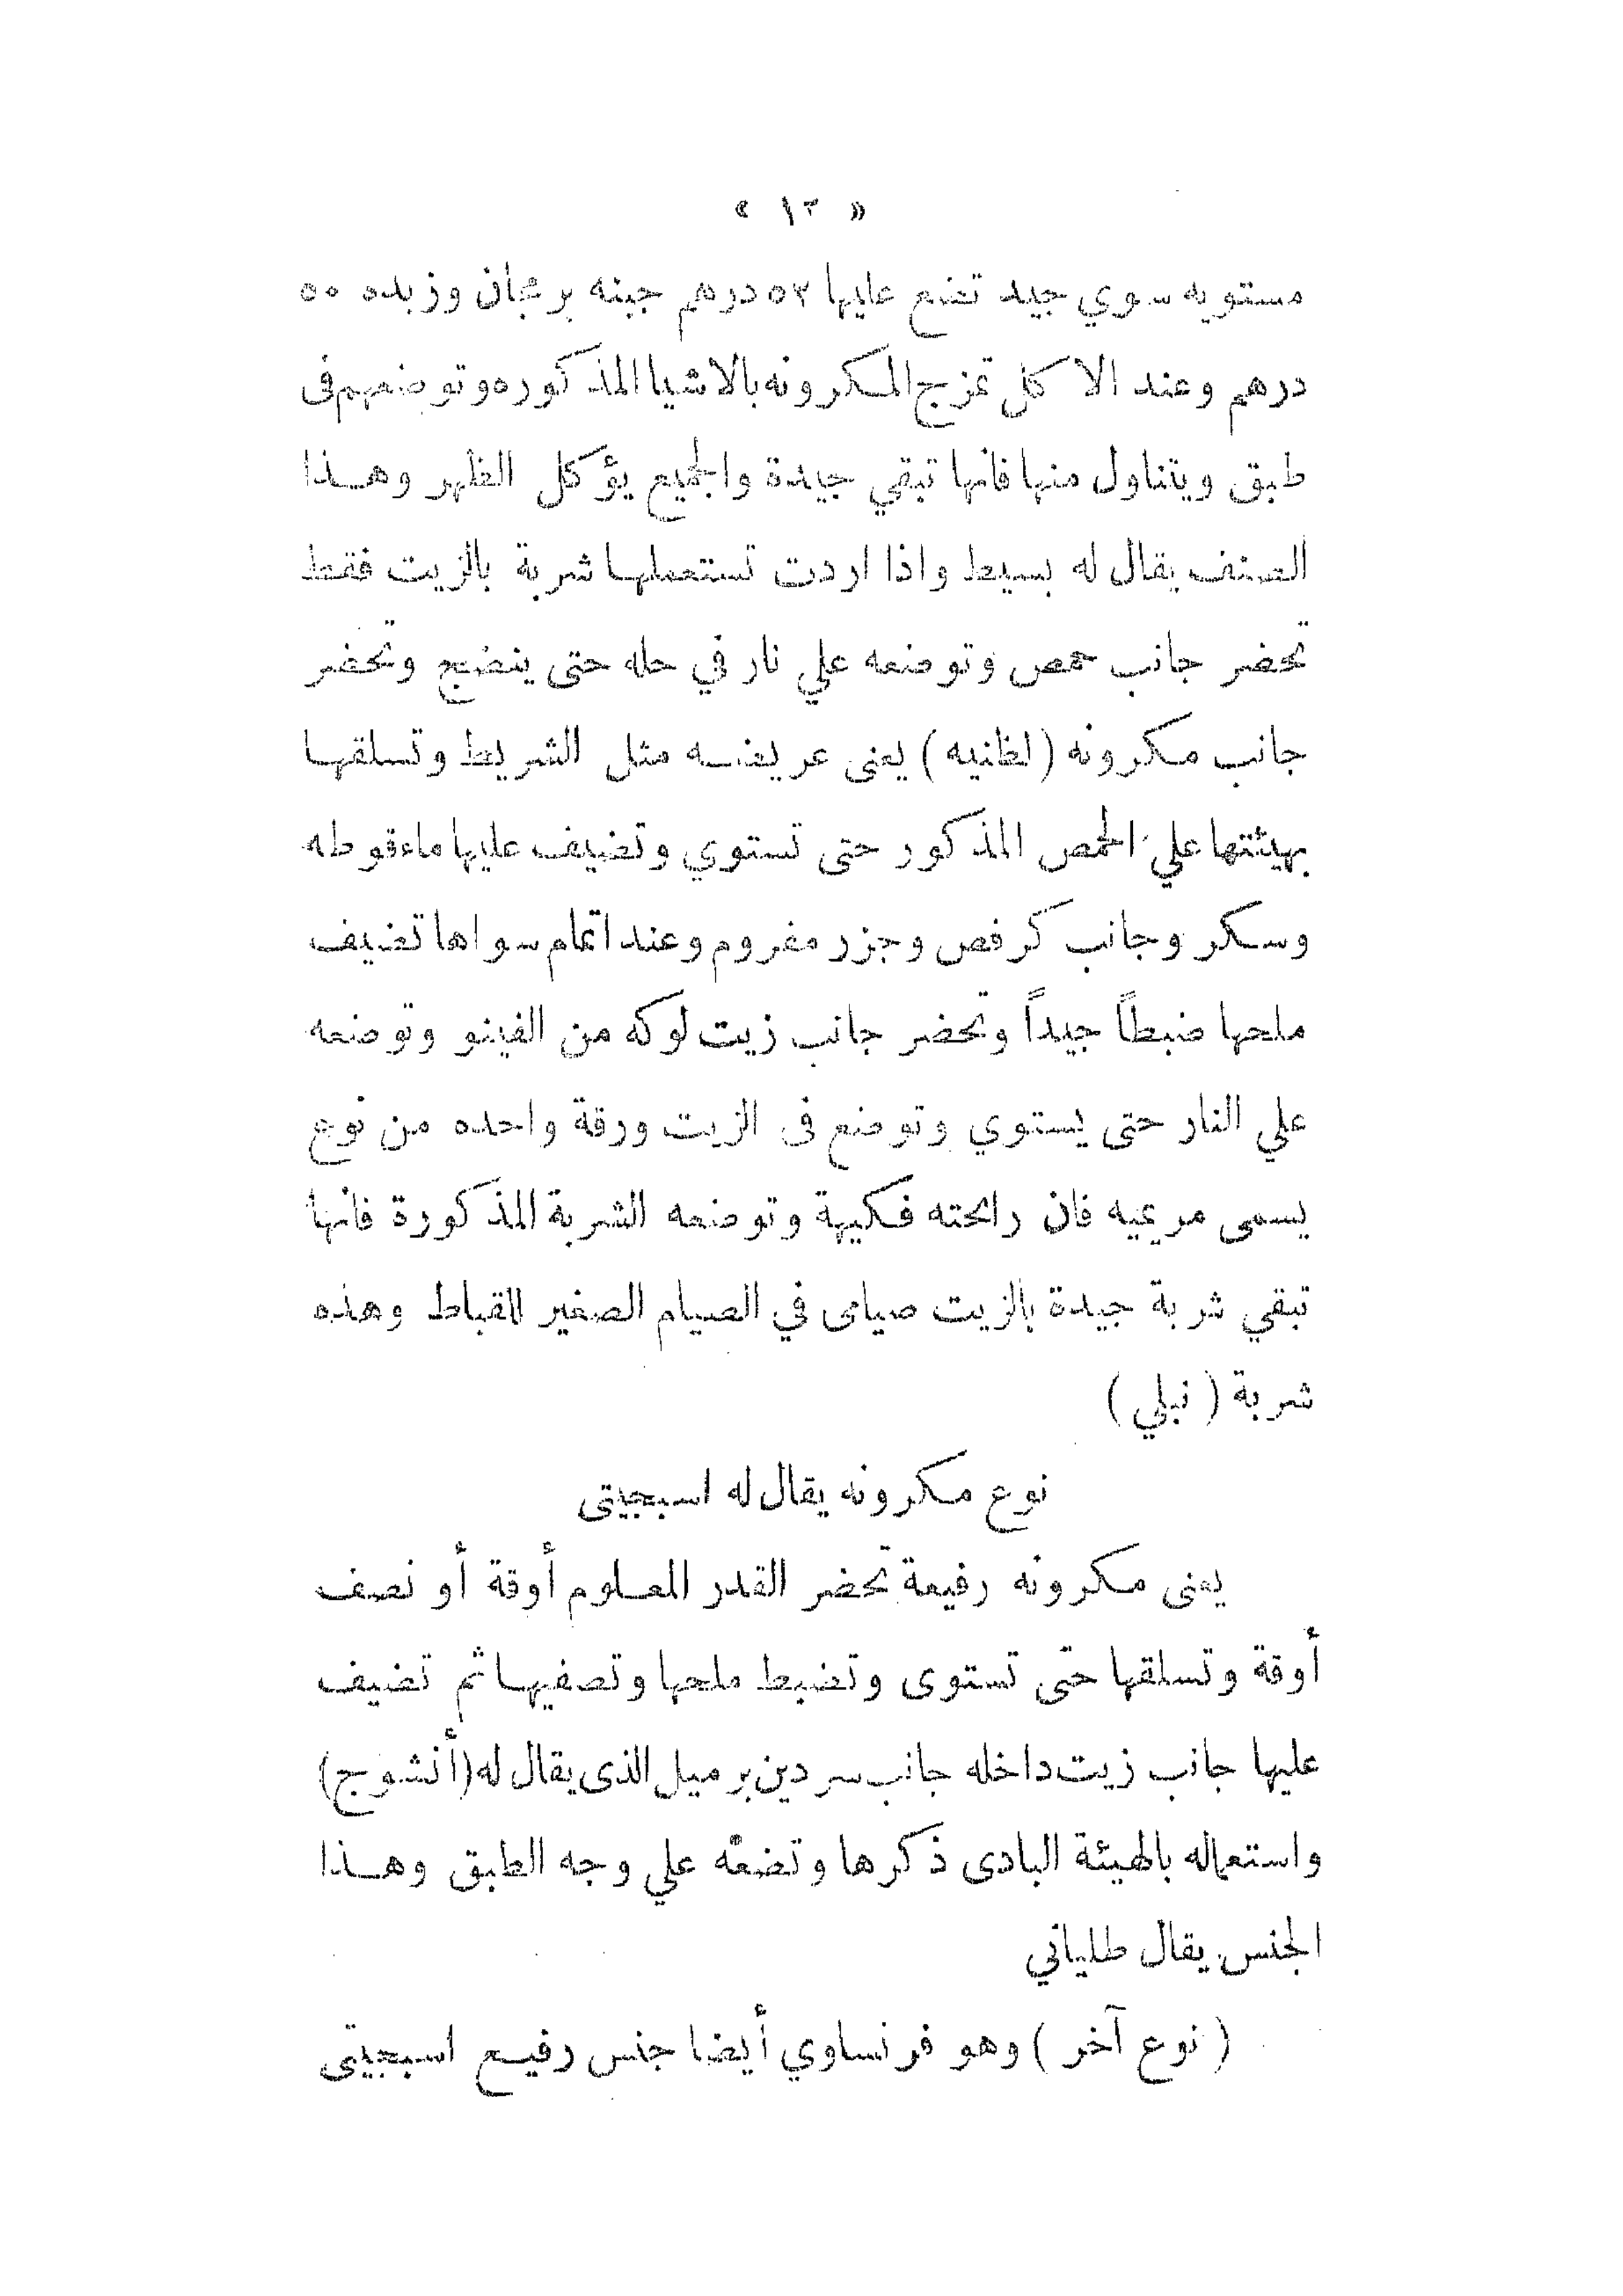 « ١٣ »
مستويه سوي جيد تضع عليها ٥٣ درهم جبنه برمجان وزبده ٥٠
درهم وعند الاكل تمزج المكرونه بالاشيا المذكوره وتوضعهم فى
طبق ويتناول منها فانها تبقي جيدة والجميع يؤكل الظهر وهـذا
الصنف يقال له بسيط واذا اردت تستعملها شربة بالزيت فقط
تحضر جانب حمص وتوضعه علي نار في حله حتى ينضج وتحضر
جانب مكرونه ( لظنيه ) يعنى عريضـه مثل الشريط وتسلقهـا
بهيئتها علي الحمص المذكور حتى تستوي وتضيف عليها ماء قوطه
وسكر وجانب كرفص وجزر مفروم وعند اتمام سواها تضيف
ملحها ضبطاً جيداً وتحضر جانب زيت لوكه من الفينو وتوضعه
علي النار حتى يستوي وتوضع فى الزيت ورقة واحده من نوع
يسمى مريميه فان رائحته فكيهة وتوضعه الشربة المذكورة فانها
تبقي شربة جيدة بالزيت صيامى في الصيام الصغير للقباط وهذه
شربة ( نبلي )
نوع مكرونه يقال له اسبجيتى
يعنى مكرونه رفيعة تحضر القدر المعلوم أوقة أو نصف
أوقة وتسلقها حتى تستوى وتضبط ملحها وتصفيها ثم تضيف
عليها جانب زيت داخله جانب سردين برميل الذى يقال له (أنشوج)
واستعماله بالهيئة البادى ذكرها وتضعه علي وجه الطبق وهـذا
الجنس يقال طلياني
( نوع آخر ) وهو فرنساوي أيضا جنس رفيـع اسبجيتى